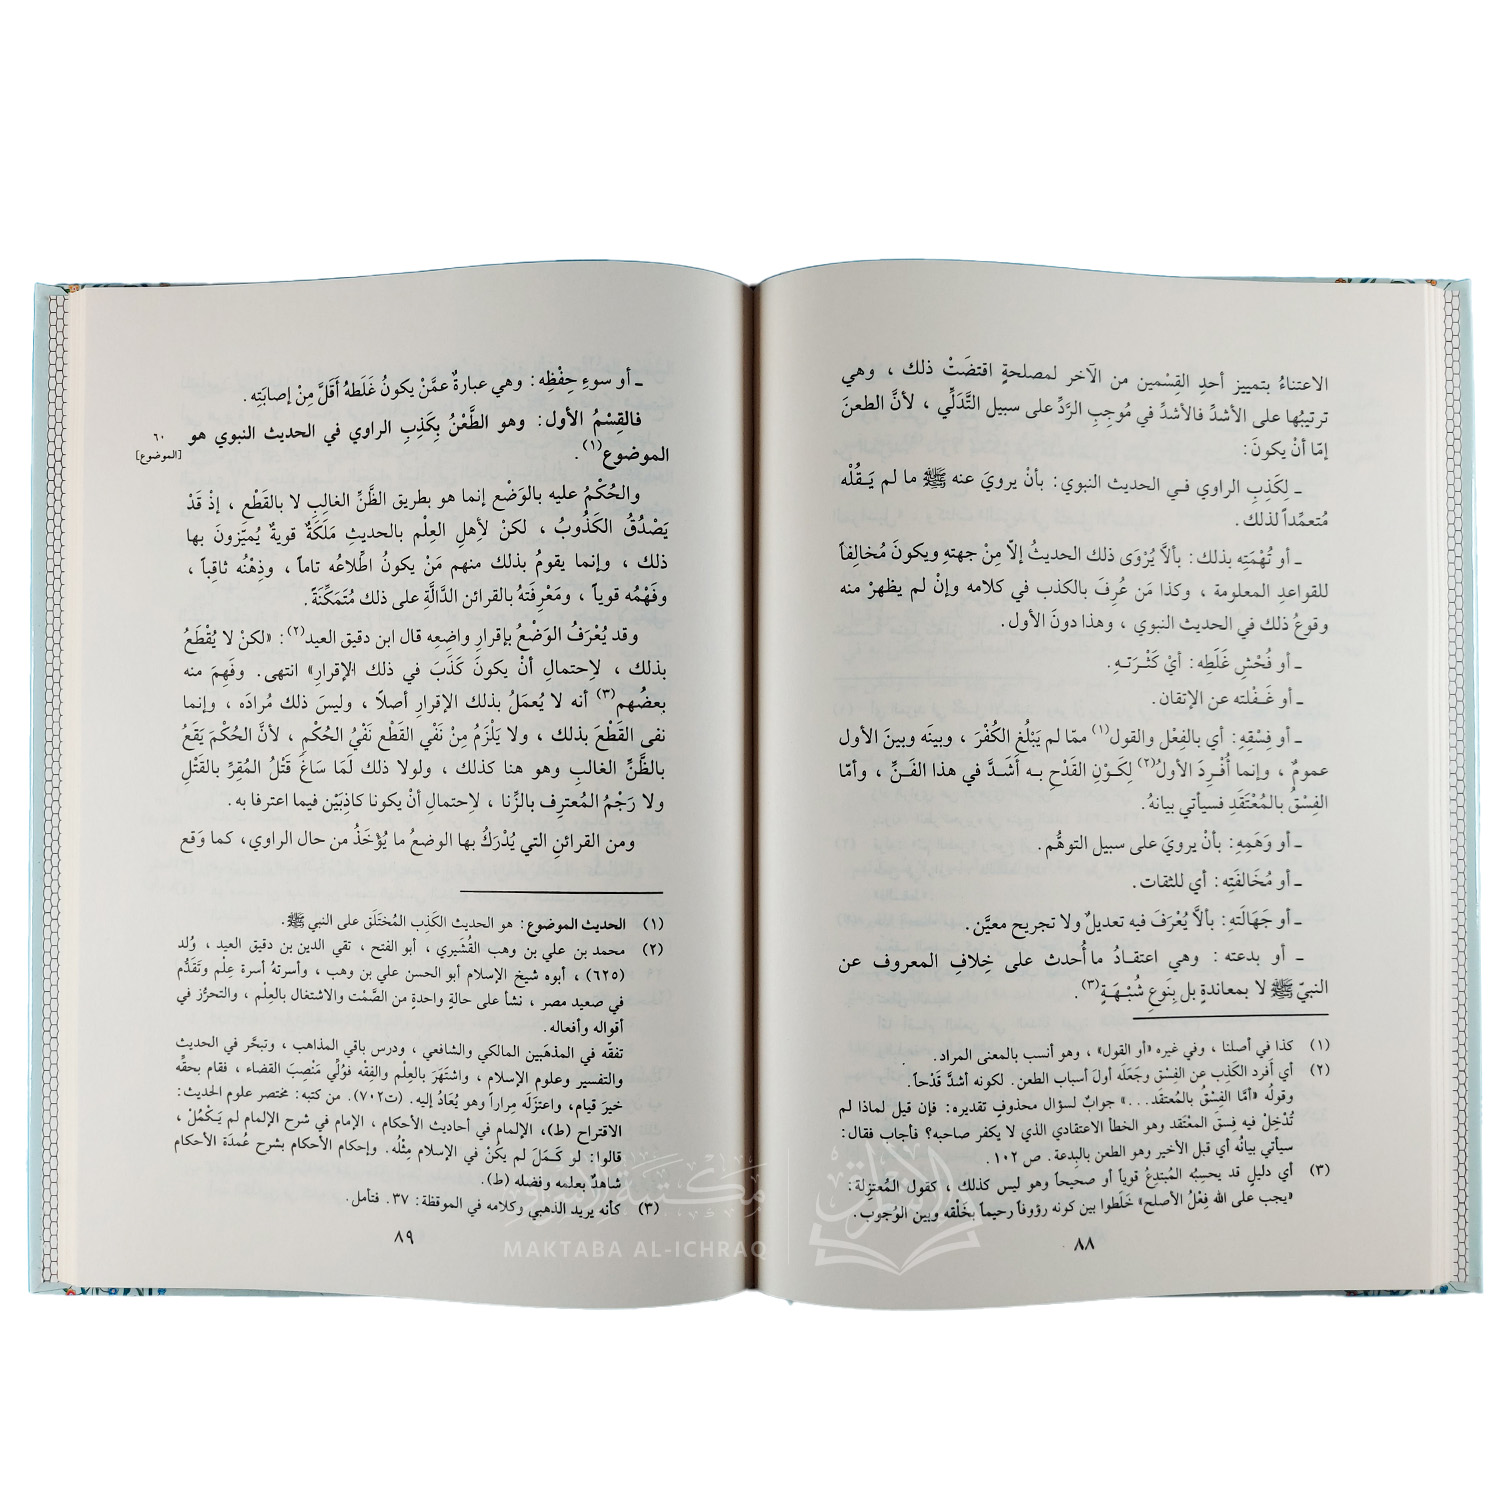 الاعتناءُ بتمييز أحدِ القِسْمين من الآخر لمصلحةٍ اقتضَتْ ذلك ، وهي
ترتيبُها على الأشدِّ فالأشدِّ في مُوجِبِ الرَّدِّ على سبيل التَّدَلِّي ، لأنَّ الطعنَ
إمّا أنْ يكونَ:
ـ لِكَذِبِ الراوي فـي الحديث النبوي: بأنْ يرويَ عنه ﷺ ما لم يَـقُلْه
مُتعمِّداً لذلك.
ـ أو تُهْمَتِه بذلك: بألاَّ يُرْوَى ذلك الحديثُ إلاّ مِنْ جهتهِ ويكونَ مُخالِفاً
للقواعدِ المعلومة ، وكذا مَن عُرِفَ بالكذب في كلامه وإنْ لم يظهرْ منه
وقوعُ ذلك في الحديث النبوي ، وهذا دونَ الأول.
ـ أو فُحْشِ غَلَطِه: أيْ كَثْـرَتـهِ.
ـ أو غَـفْلته عن الإتقان.
ـ أو فِسْقِهِ: أي بالفِعْل والقول(١) ممّا لم يَبْلُغِ الكُفْرَ ، وبينَه وبينَ الأول
عمومٌ ، وإنما أُفْـرِدَ الأولُ(٢) لِكَـوْنِ القَدْحِ بـه أَشَدَّ في هذا الفَـنِّ ، وأمّا
الفِسْقُ بالمُعْتَقَدِ فسيأتي بيانهُ.
ـ أو وَهَمِهِ: بأنْ يرويَ على سبيل التوهُّم.
ـ أو مُخَالفَتِه: أي للثقات.
ـ أو جَهَالَتهِ: بألاَّ يُعْرَفَ فيه تعديلٌ ولا تجريح معيَّن.
ـ أو بدعته: وهي اعتقـادُ ما أُحدث على خِلافِ المعروف عن
النبيّ ﷺ لا بمعاندةٍ بل بِنَوعِ شُبْـهَـةٍ(٣).
(١) كذا في أصلنا ، وفي غيره «أو القول» ، وهو أنسب بالمعنى المراد.
(٢) أي أَفرد الكَذِبَ عن الفِسْق وجَعَلَه أولَ أسباب الطعن. لكونه أشدَّ قَدْحاً.
وقولُه «أمَّا الفِسْقُ بالمُعتقَد...» جوابٌ لسؤال محذوفٍ تقديره: فإن قيل لماذا لم
تُدْخِلْ فيه فِسقَ المعْتَقد وهو الخطأ الاعتقادي الذي لا يكفر صاحبه؟ فأجاب فقال:
سيأتي بيانُه أي قبل الأخير وهو الطعن بالبِدعة. ص ١٠٢.
(٣) أي دليلٍ قد يحسبُه المبُتدعُ قوياً أو صحيحاً وهو ليس كذلك ، كقول المُعتزِلة:
«يجب على الله فِعْلُ الأصلح» خَلَطوا بين كونه رؤوفاً رحيماً بخَلْقه وبين الوُجوب.
٨٨
ـ أو سوءِ حِفْظِه: وهي عبارةٌ عمَّنْ يكونُ غَلَطهُ أَقَلَّ مِنْ إصابَتِه.
فالقِسْمُ الأول: وهو الطَّعْنُ بِكَذِبِ الراوي في الحديث النبوي هو
٦٠
[الموضوع]
الموضوع(١).
والحُكْمُ عليه بالوَضْع إنما هو بطريق الظَّنِّ الغالبِ لا بالقَطْعِ ، إذ قَدْ
يَصْدُقُ الكَذُوبُ ، لكنْ لأهلِ العِلْم بالحديثِ مَلَكَةٌ قويةٌ يُميّزونَ بها
ذلك ، وإنما يقومُ بذلك منهم مَنْ يكونُ اطِّلاعُه تاماً ، وذِهْنُه ثاقِباً ،
وفَهْمُه قوياً ، ومَعْرِفَتهُ بالقرائن الدَّالَّةِ على ذلك مُتَمَكِّنَةً.
وقد يُعْرَفُ الوَضْعُ بإقرارِ واضِعِه قال ابن دقيق العيد(٢): «لكنْ لا يُقْطَعُ
بذلك ، لاِحتمالِ أنْ يكونَ كَذَبَ في ذلك الإقرارِ» انتهى. وفَهِمَ منه
بعضُهم(٣) أنه لا يُعمَلُ بذلك الإقرارِ أصلاً ، وليسَ ذلك مُرادَه ، وإنما
نفى القَطْعَ بذلك ، ولا يَلْزَمُ مِنْ نَفْي القَطْع نَفْيُ الحُكْمِ ، لأنَّ الحُكْمَ يَقَعُ
بالظَّنِّ الغالبِ وهو هنا كذلك ، ولولا ذلك لَمَا سَاغَ قَتْلُ المُقِرِّ بالقَتْلِ
ولا رَجْمُ المُعترِفِ بالزِّنا ، لاِحتمالِ أنْ يكونا كاذِبَيْن فيما اعترفا به.
ومن القرائنِ التي يُدْرَكُ بها الوضعُ ما يُؤْخَذُ من حال الراوي، كما وَقع
(١) الحديث الموضوع: هو الحديث الكَذِب المُختَلَق على النبي ﷺ.
(٢) محمد بن علي بن وهب القُشَيري ، أبو الفتح ، تقي الدين بن دقيق العيد ، وُلد
(٦٢٥) ، أبوه شيخ الإسلام أبو الحسن علي بن وهب ، وأسرتهُ أسرة عِلْم وتَقَدُّم
في صعيد مصر ، نشأ على حالةٍ واحدةٍ من الصَّمْت والاشتغال بالعِلْم ، والتحرُّز في
أقواله وأفعاله.
تفقّه في المذهَبين المالكي والشافعي ، ودرس باقي المذاهب ، وتبحَّر في الحديث
والتفسير وعلوم الإسلام ، واشتَهَرَ بالعِلْم والفِقْه فوُلِّي مَنْصِبَ القضاء ، فقام بحقِّه
خيرَ قيام، واعتزَلَه مِراراً وهو يُعَادُ إليه. (ت٧٠٢). من كتبه: مختصر علوم الحديث:
الاقتراح (ط)، الإلمام في أحاديث الأحكام ، الإمام في شرح الإلمام لم يَـكْمُلْ ،
قالوا: لو كَـمَلَ لم يكُنْ في الإسلام مِثْلُه. وإحكام الأحكام بشرح عُمدَة الأحكام
شاهدٌ بعلمه وفضله (ط).
(٣) كأنه يريد الذهبي وكلامه في الموقظة: ٣٧. فتأمل.
٨٩
مكتبة الإشراق
MAKTABA AL-ICHRAQ
الإشراق